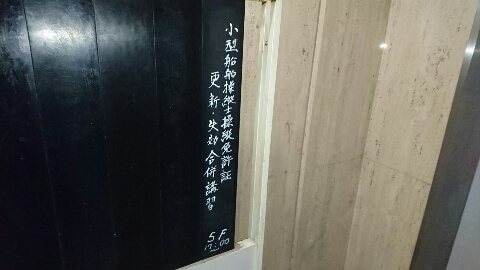 小型船舶操縦士操縦免許証
更新・失効合併講習
5F
17:00